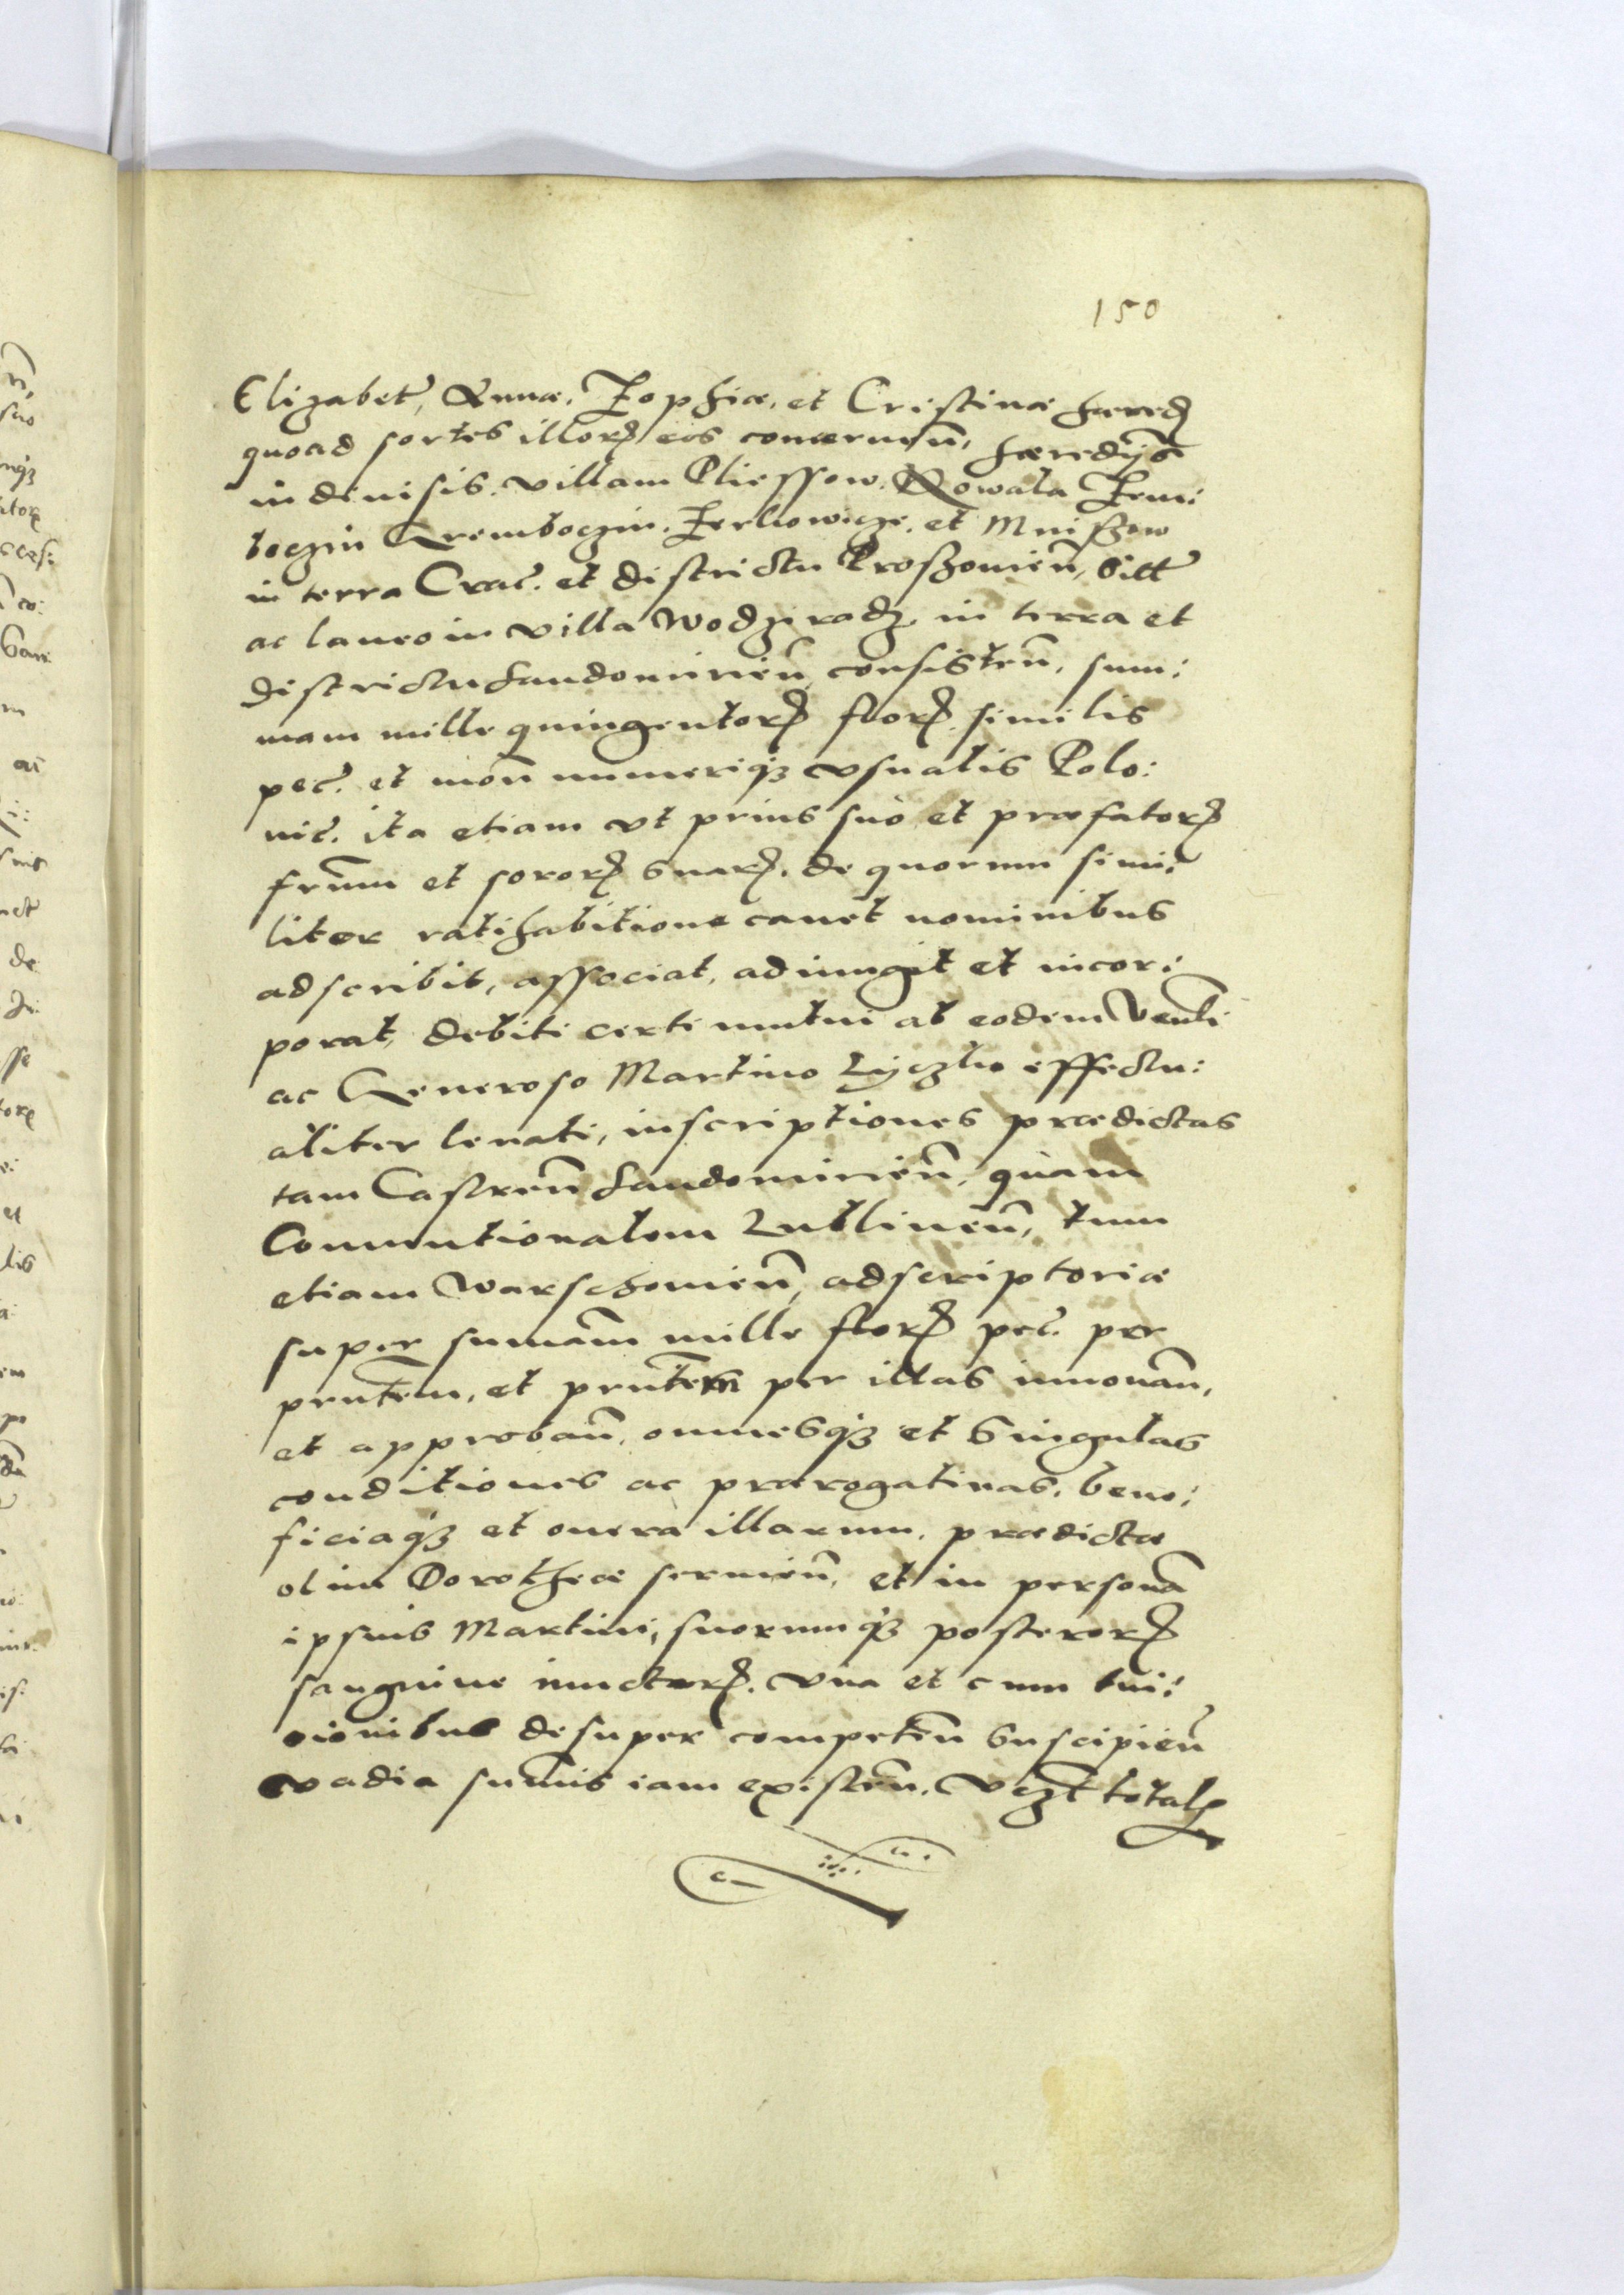 150
Elizabet, Annæ, Zophiæ, et Cristinæ hæred
quoad sortes illorꝝ eos concernen̄, hæredijs
in diuisis. villam Pliessow. Kowala Zemi:
boczin Grembocin. Zerkowicze. et Mniszow
in terra Crac̄. et districtu Proszouien̄, Sitt
ac laneo in villa Wodziradz in terra et
districtu Sandomirien̄, consisten̄, sum:
mam mille quingentorꝝ florꝝ similis
pec̄. et mon̄ numeriqꝫ vsualis Polo:
nic̄. ita etiam vt prius suo et præfatorꝝ
fr̄um et sororꝝ suarꝝ. de quorum simi:
liter ratihabitione cauet nominibus
adscribit, associat, adiungit et incor:
porat, debiti certi mutui ab eodem Ven̄li
ac Generoso Martino Lyczko effectu:
aliter leuati, inscriptiones prædictas
tam Castren̄ Sandomirien̄, quam
Conuentionalem Lublinen̄, tum
etiam Warschouien̄, adscriptoriæ
super summam mille florꝝ pec̄. per
prn̄tem, et prn̄tem per illas innouan̄,
et approban̄, omnesqꝫ et Singulas
conditiones ac prærogatiuas, bene:
ficiaqꝫ et onera illarum, prædictæ
olim Dorotheæ seruien̄, et in personā
ipsius Martini, suorumqꝫ posterorꝝ
sanguine iunctorꝝ. Vna et cum tui:
cionibus desuper competen̄ Suscipien̄
vadia summis iam existen̄. Vczt totalꝭ